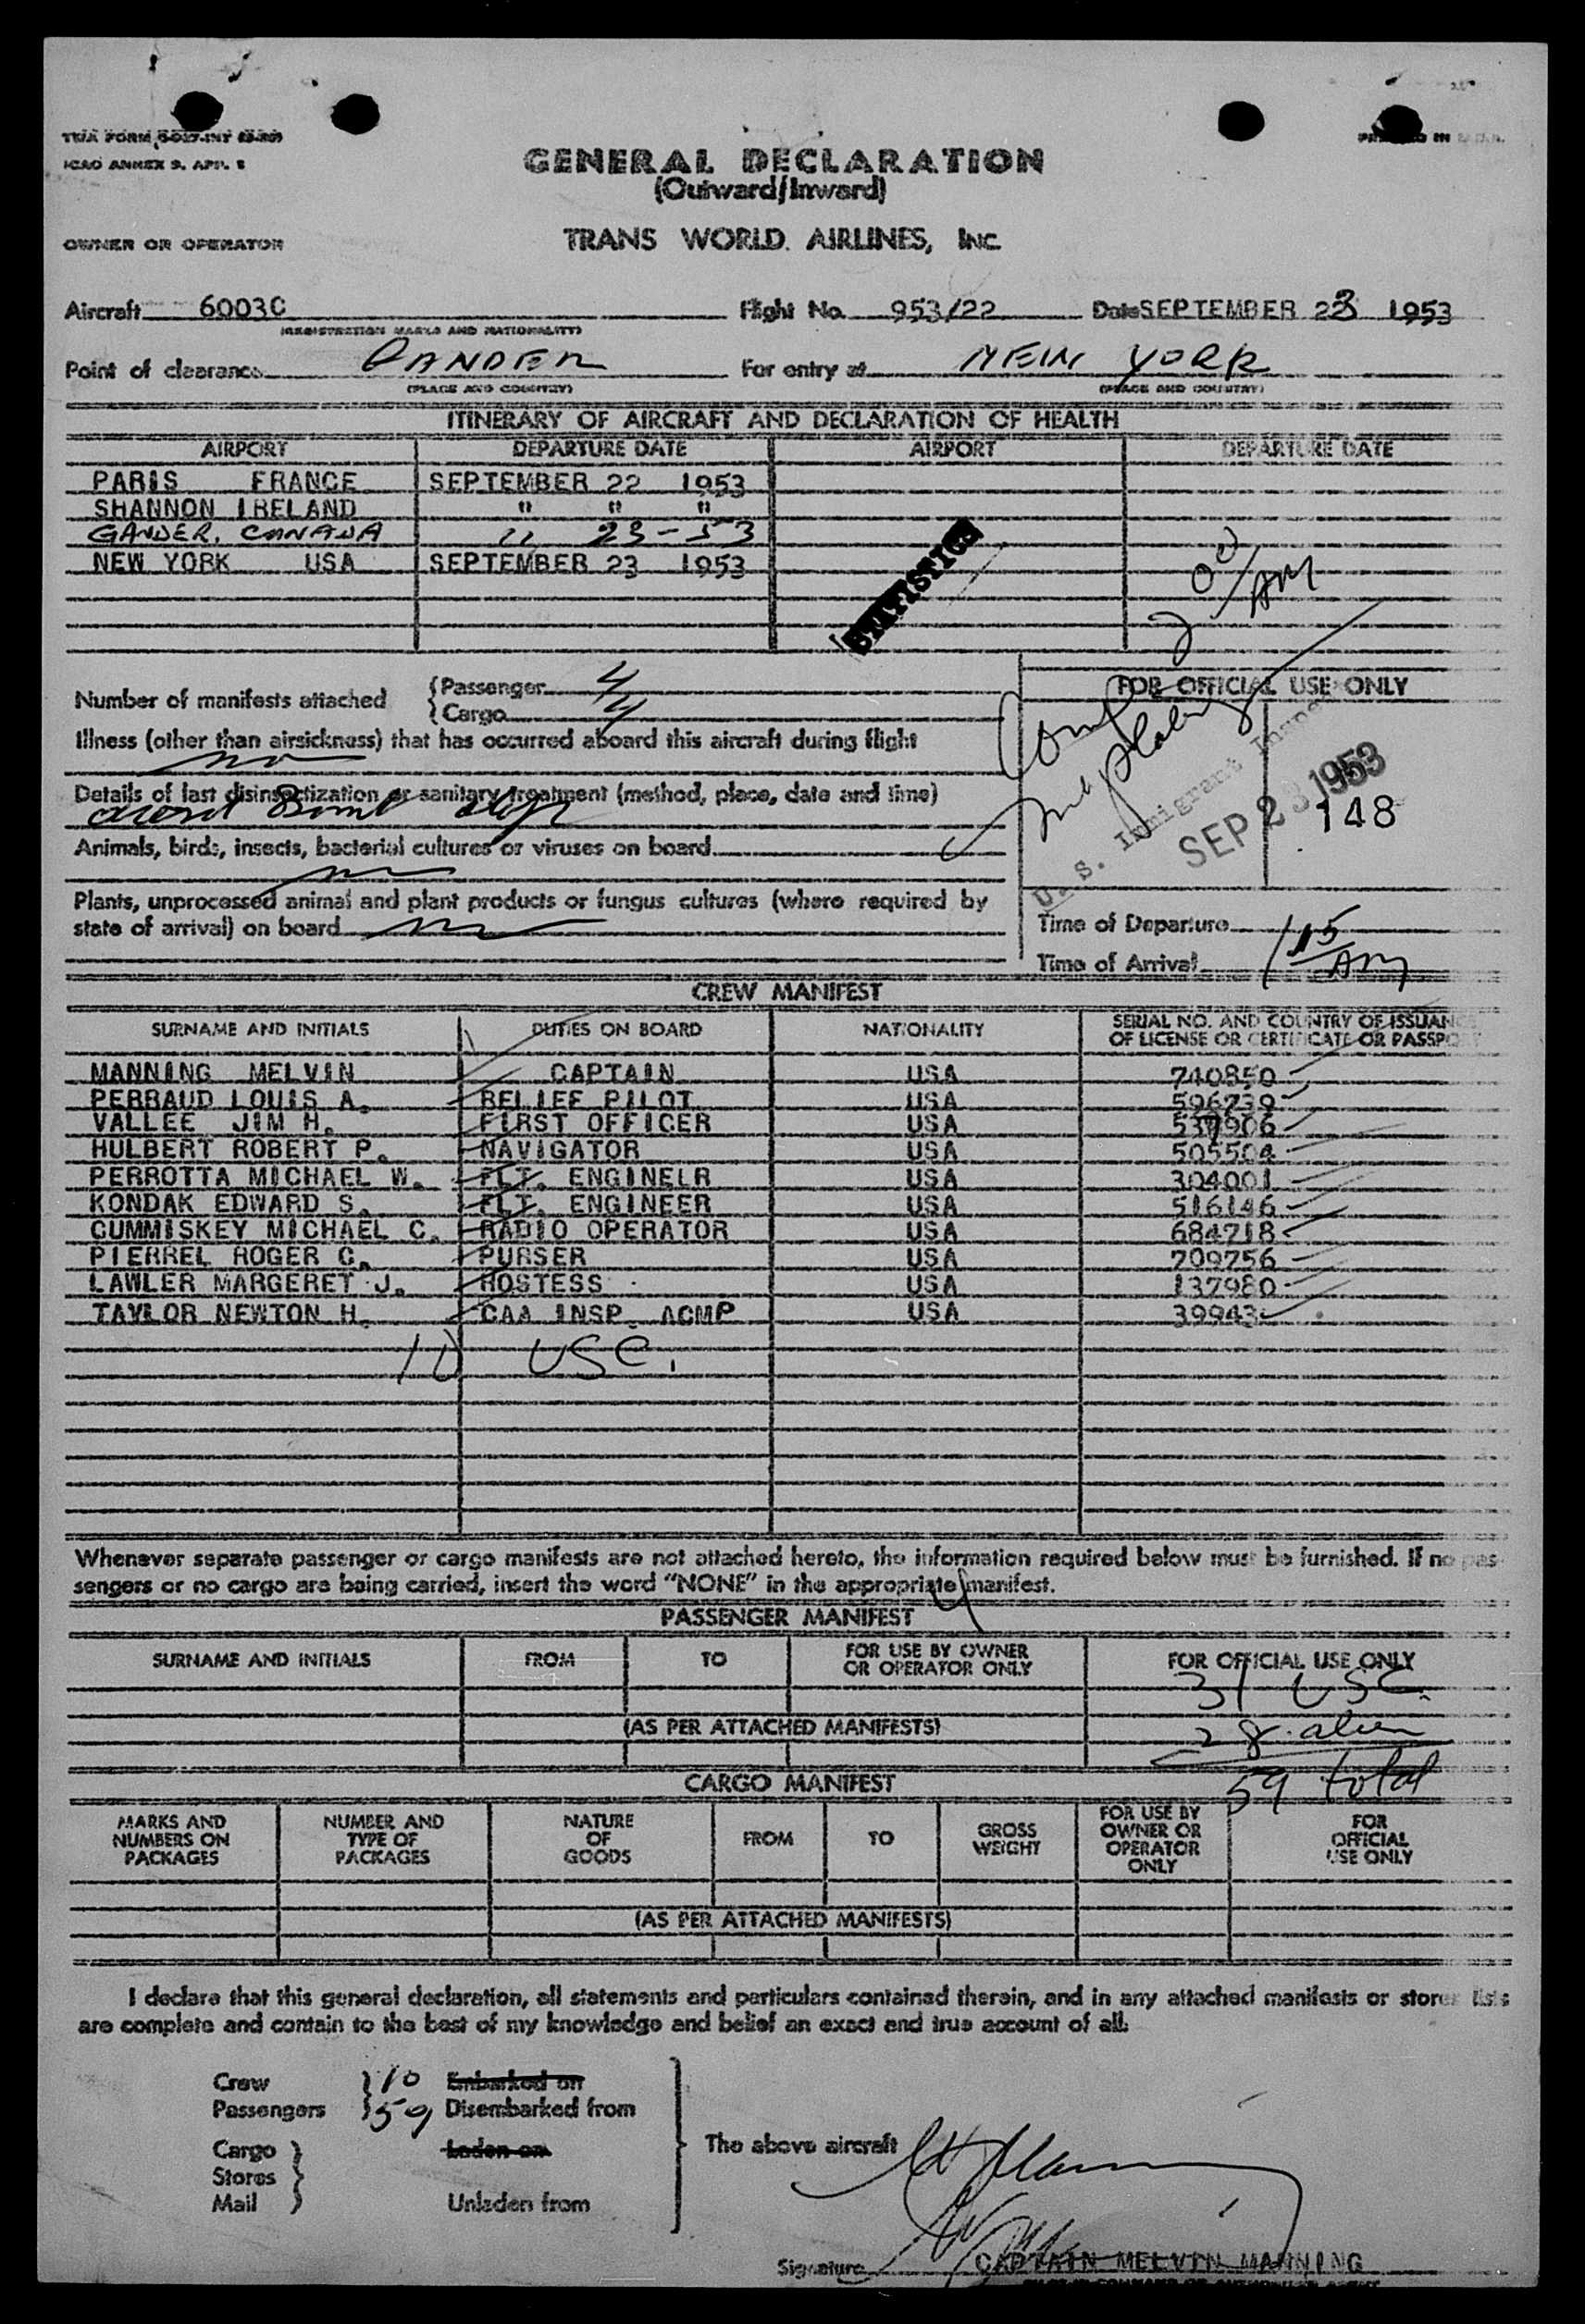 TWA FORM
ICAO ANNEX 9. APP. 1
GENERAL DECLARATION
(Outward/Inward)
OWNER OR OPERATOR TRANS WORLD AIRLINES, INC.
Aircraft 6003C Flight No. 953/22 Date SEPTEMBER 23 1953
(REGISTRATION MARKS AND NATIONALITY)
Point of clearance GANDER For entry at NEW YORK
(PLACE AND COUNTRY) (PLACE AND COUNTRY)
ITINERARY OF AIRCRAFT AND DECLARATION OF HEALTH
AIRPORT DEPARTURE DATE AIRPORT DEPARTURE DATE
PARIS FRANCE SEPTEMBER 22 1953
SHANNON IRELAND " " "
GANDER, CANADA " 23-53
NEW YORK USA SEPTEMBER 23 1953
STATISTICS
200/AM
Number of manifests attached {Passenger 4
{Cargo 4
FOR OFFICIAL USE ONLY
Illness (other than airsickness) that has occurred aboard this aircraft during flight
no
Details of last disinsectization or sanitary treatment (method, place, date and time)
U. S. Immigrant
SEP 23 1953
148
Animals, birds, insects, bacterial cultures or viruses on board
no
Plants, unprocessed animal and plant products or fungus cultures (where required by
state of arrival) on board no
Time of Departure
Time of Arrival 115/AM
CREW MANIFEST
SURNAME AND INITIALS DUTIES ON BOARD NATIONALITY SERIAL NO. AND COUNTRY OF ISSUANCE
OF LICENSE OR CERTIFICATE OR PASSPORT
MANNING MELVIN CAPTAIN USA 740850
PERRAUD LOUIS A. RELIEF PILOT USA 596239
VALLEE JIM H. FIRST OFFICER USA 537906
HULBERT ROBERT P. NAVIGATOR USA 505504
PERROTTA MICHAEL W. FLT. ENGINELR USA 304001
KONDAK EDWARD S. FLT. ENGINEER USA 516146
CUMMISKEY MICHAEL C. RADIO OPERATOR USA 684718
PIERREL ROGER C. PURSER USA 709756
LAWLER MARGERET J. HOSTESS USA 137980
TAYLOR NEWTON H. CAA INSP. ACMP USA 39943
10 USC.
Whenever separate passenger or cargo manifests are not attached hereto, the information required below must be furnished. If no pas-
sengers or no cargo are being carried, insert the word "NONE" in the appropriate manifest.
PASSENGER MANIFEST
SURNAME AND INITIALS FROM TO FOR USE BY OWNER
OR OPERATOR ONLY FOR OFFICIAL USE ONLY
31 USC.
(AS PER ATTACHED MANIFESTS) 28 alien
CARGO MANIFEST 59 total
MARKS AND
NUMBERS ON
PACKAGES NUMBER AND
TYPE OF
PACKAGES NATURE
OF
GOODS FROM TO GROSS
WEIGHT FOR USE BY
OWNER OR
OPERATOR
ONLY FOR
OFFICIAL
USE ONLY
(AS PER ATTACHED MANIFESTS)
I declare that this general declaration, all statements and particulars contained therein, and in any attached manifests or stores lists
are complete and contain to the best of my knowledge and belief an exact and true account of all.
Crew } 10 Embarked on
Passengers } 59 Disembarked from
Cargo } Laden on
Stores }
Mail } Unladen from
The above aircraft
Signature CAPTAIN MELVIN MANNING